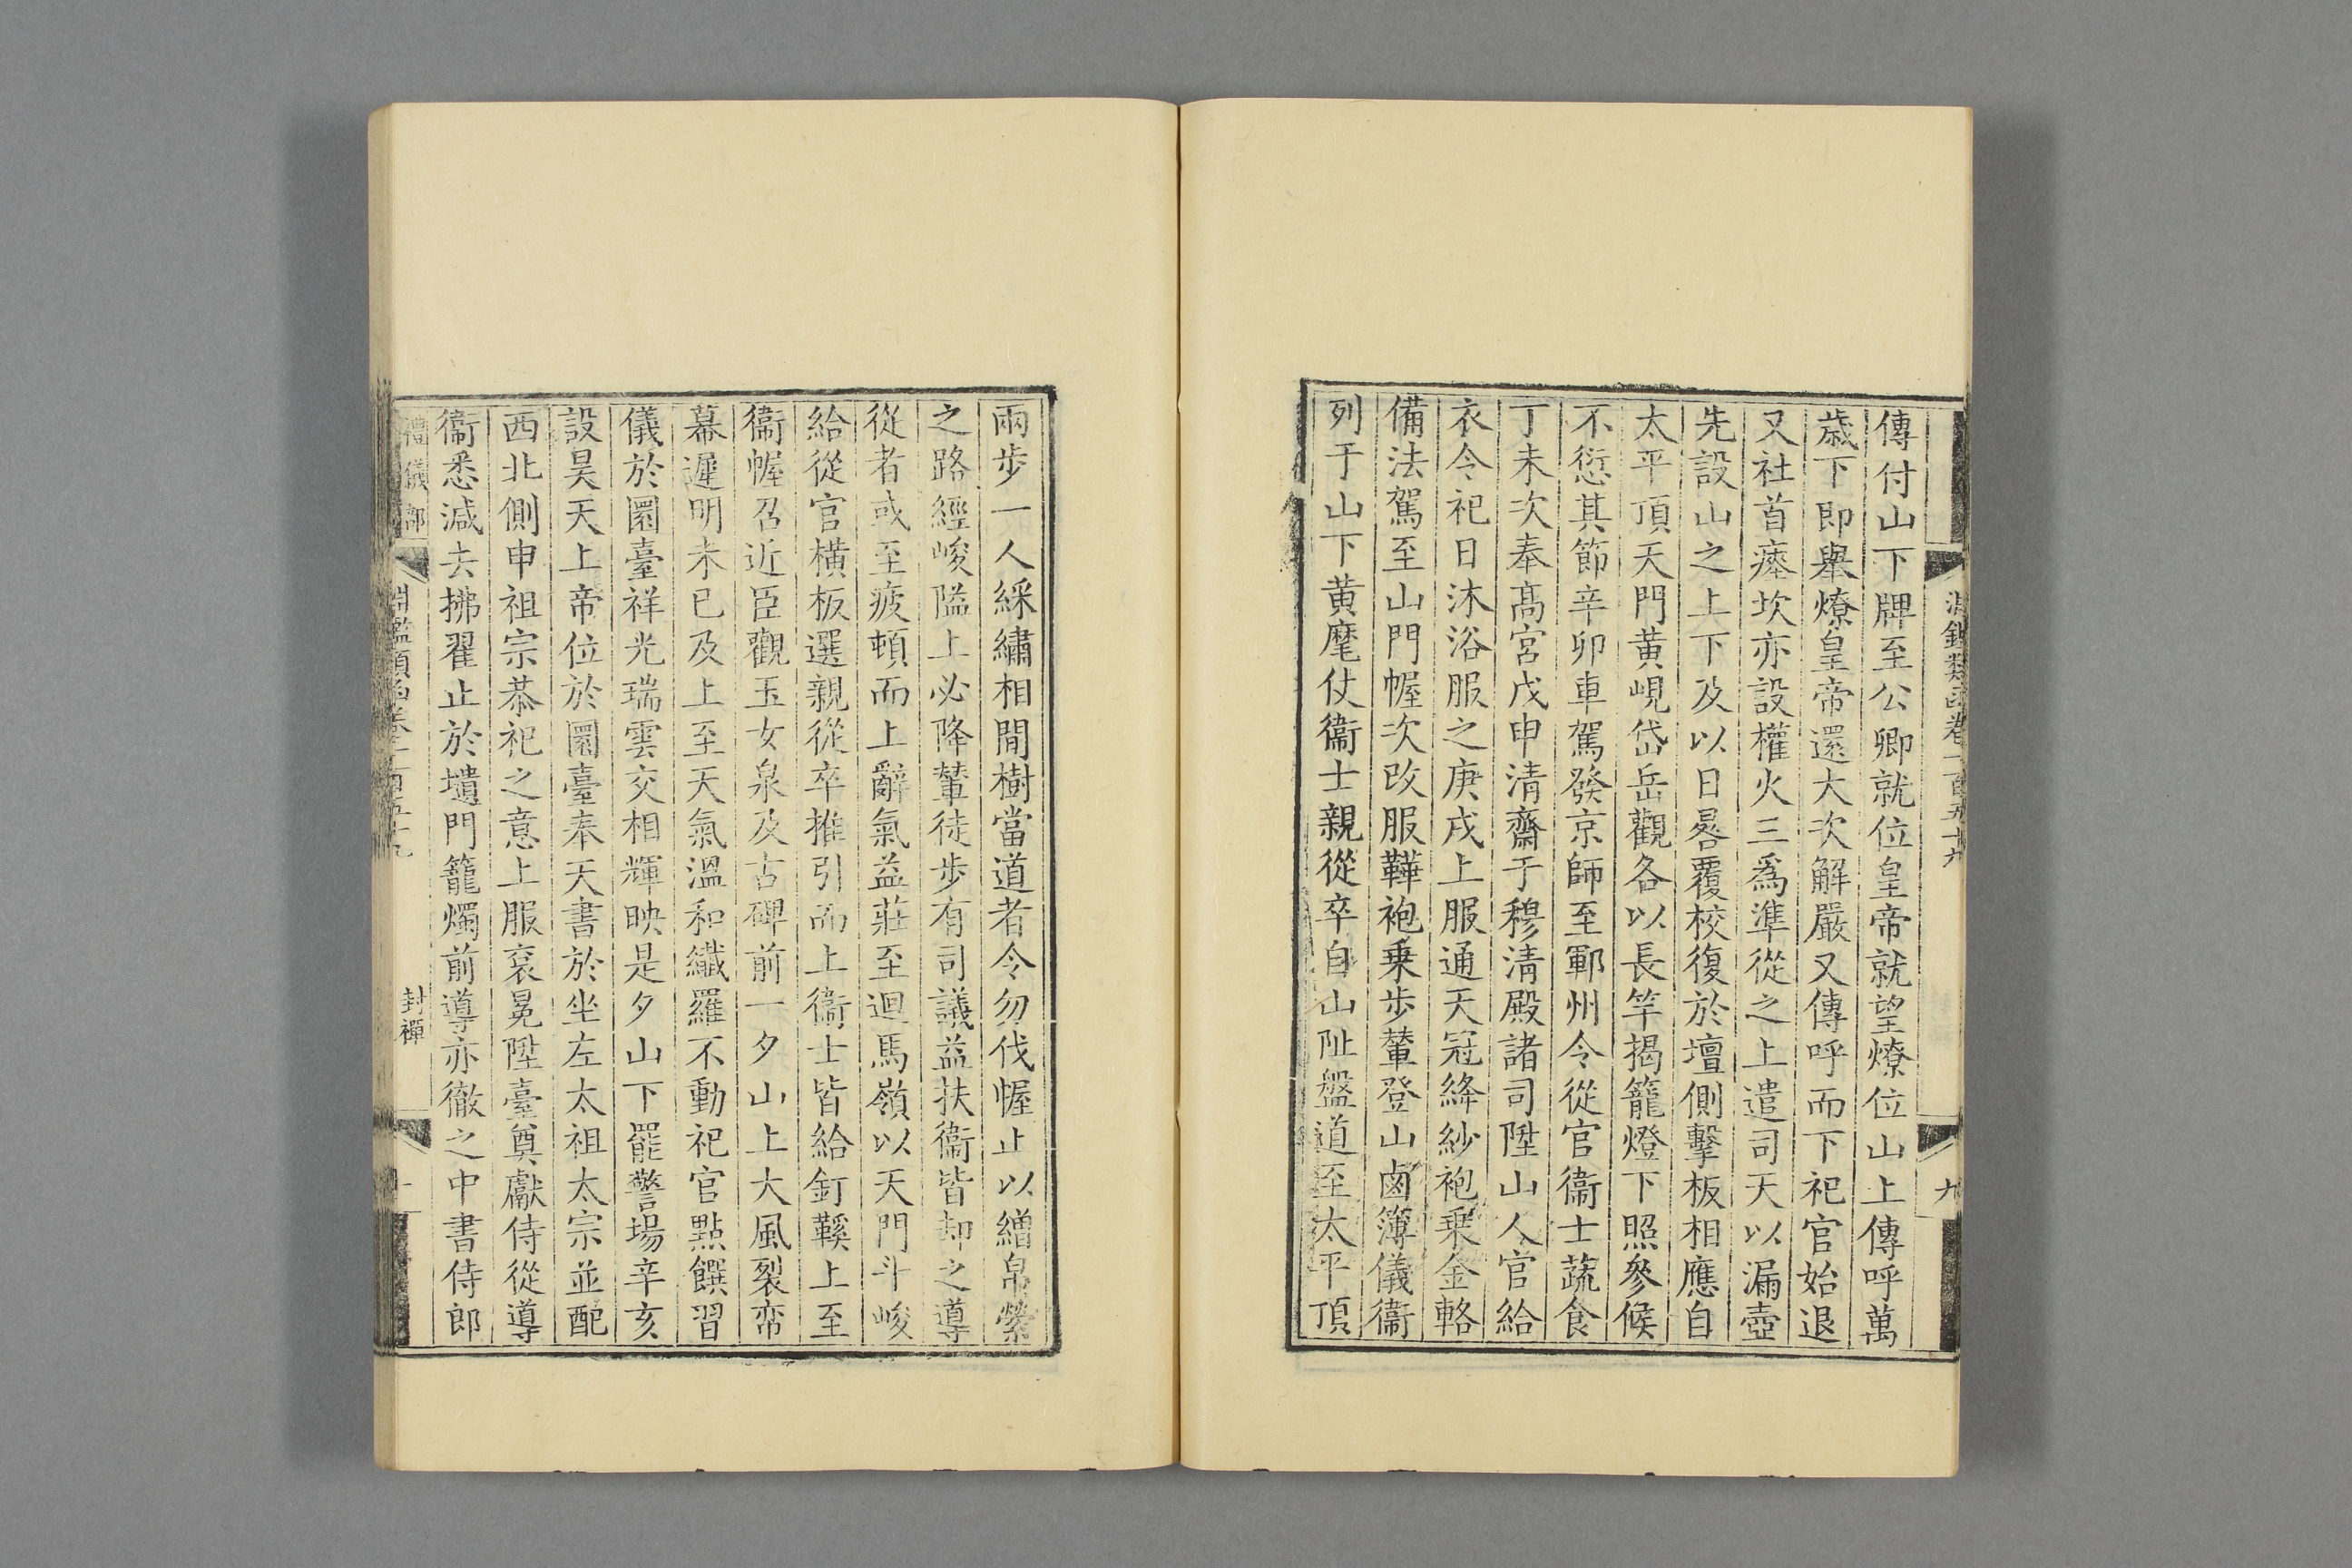 淵鑑類函卷一百五十九
九
傳付山下牌至公卿就位皇帝就望燎位山上傳呼萬
歲下即舉燎皇帝還大次解嚴又傳呼而下祀官始退
又社首瘞坎亦設權火三爲準從之上遣司天以漏壺
先設山之上下及以日晷覆校復於壇側擊板相應自
太平頂天門黄峴岱岳觀各以長竿揭籠燈下照參候
不愆其節辛卯車駕發京師至鄆州令從官衞士蔬食
丁未次奉髙宮戊申清齋于穆清殿諸司陞山人官給
衣令祀日沐浴服之庚戌上服通天冠絳紗袍乗金輅
備法駕至山門幄次改服鞾袍乗步輦登山鹵簿儀衞
列于山下黄麾仗衞士親從卒自山趾盤道至太平頂
兩步一人綵繡相間樹當道者令勿伐幄止以繒帛縈
之路經峻隘上必降輦徒步有司議益扶衞皆却之導
從者或至疲頓而上辭氣益莊至迴馬嶺以天門斗峻
給從官橫板選親從卒推引而上衞士皆給釘鞵上至
衞幄召近臣觀玉女泉及古碑前一夕山上大風裂帟
幕遲明未已及上至天氣溫和纖羅不動祀官點饌習
儀於圜臺祥光瑞雲交相輝映是夕山下罷警場辛亥
設昊天上帝位於圜臺奉天書於坐左太祖太宗並配
西北側申祖宗恭祀之意上服袞冕陞臺奠獻侍從導
衞悉減去拂翟止於壝門籠燭前導亦徹之中書侍郎
禮儀部
淵鑑類函卷一百五十九
封禪